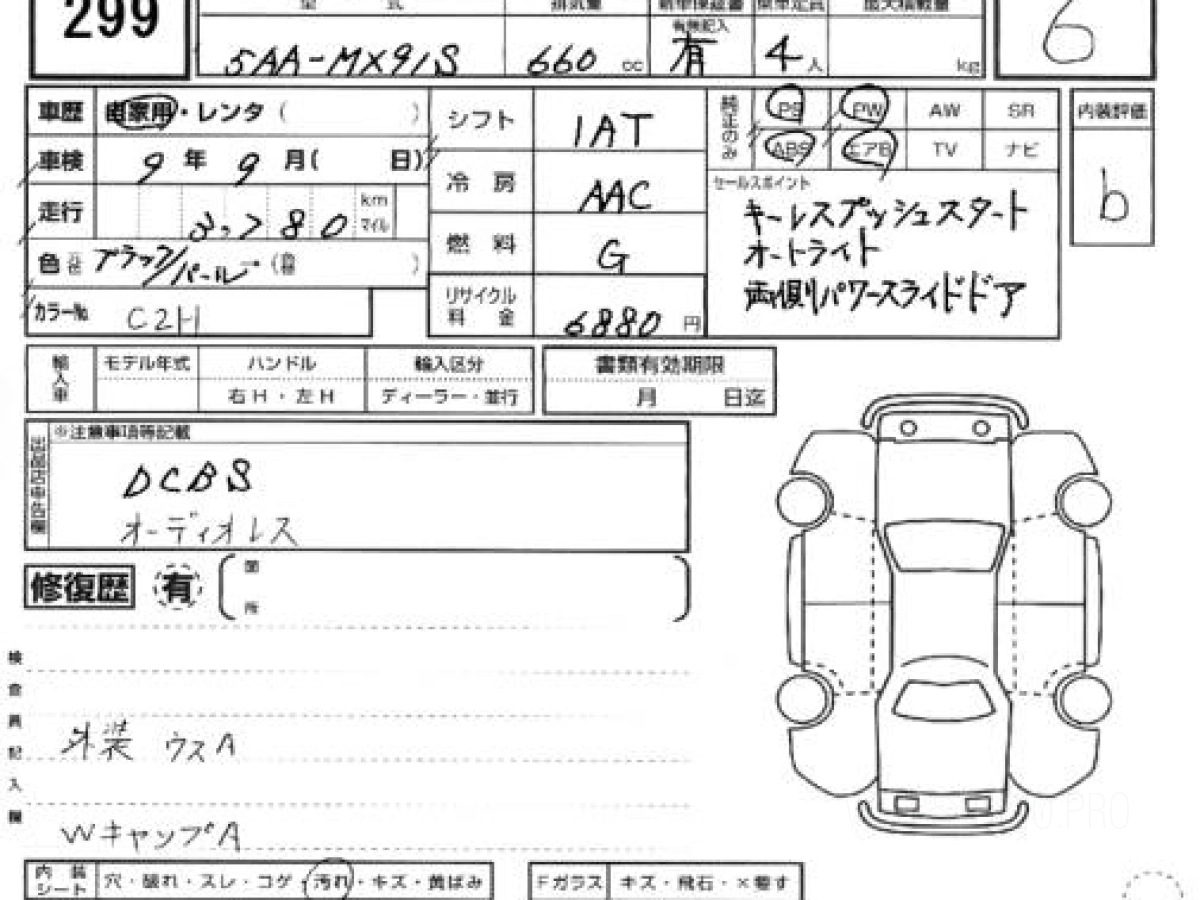 299
型 式 排気量 新車保証書 乗車定員 最大積載量
有無記入
5AA-MX91S 660 cc 有 4 人 kg
6
車歴 自家用・レンタ ( )
車検 9 年 9 月( 日)
走行 3,780 km マイル
色 元色 ブラック/パール ( )
カラー№ C2H
シフト 1AT
冷房 AAC
燃料 G
リサイクル料金 6880 円
純正のみ PS PW AW SR
ABS エアB TV ナビ
セールスポイント
キーレスプッシュスタート
オートライト
両側パワースライドドア
内装評価
b
輸入車 モデル年式 ハンドル 輸入区分
右H・左H ディーラー・並行
書類有効期限
月 日迄
出品店申告欄 ※注意事項等記載
DCBS
オーディオレス
修復歴 有 箇所
検査員記入欄
外装 ウスA
WキャンプA
内装シート 穴・破れ・スレ・コゲ・汚れ・キズ・黄ばみ
Fガラス キズ・飛石・×要す